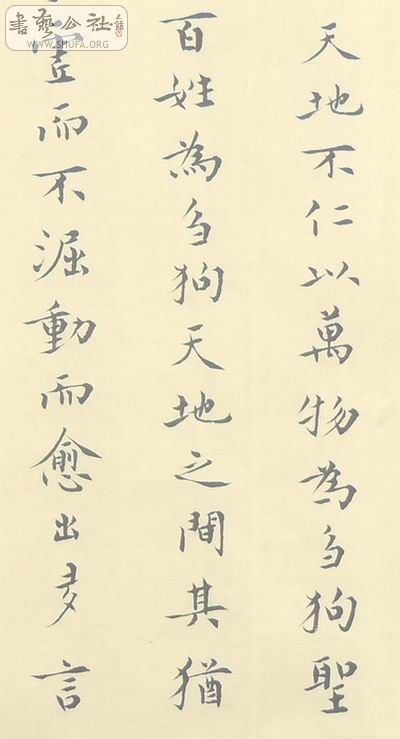 天地不仁以萬物為芻狗聖
百姓為芻狗天地之間其猶
虛而不淈動而愈出多言
書藝公社
www.SHUFA.ORG